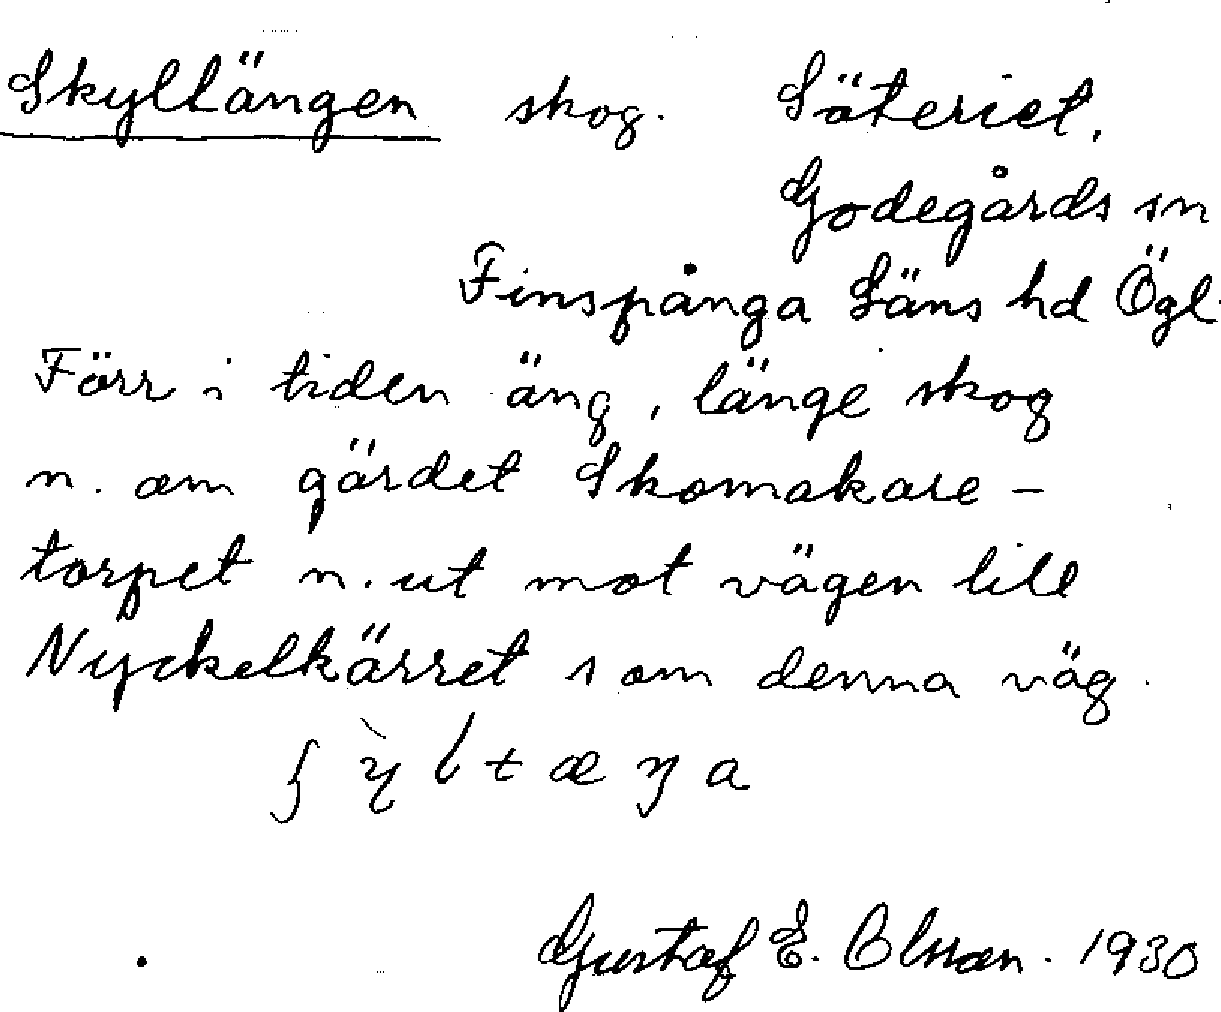 Skyltängen skog. Säteriet,
Godegårds sn
Finspånga Läns hd Ögl.
Förr i tiden äng, länge skog
n. om gärdet Skomakare-
torpet n. ut mot vägen till
Nyckelkärret s om denna väg.
Gustaf E. Olsson. 1930